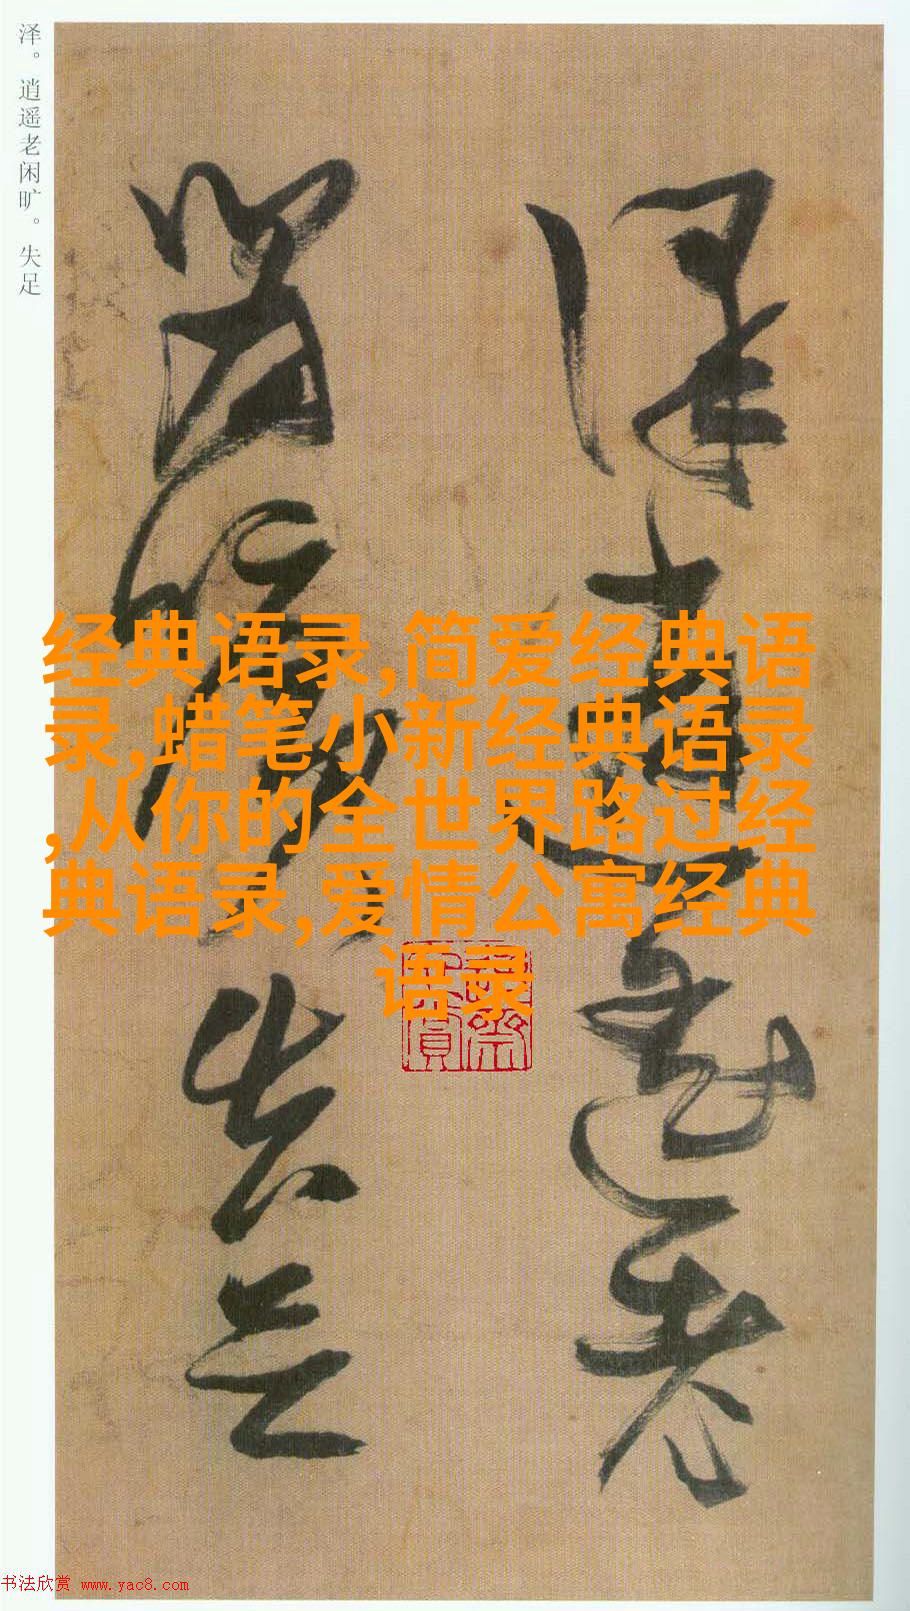 泽。逍遥老闲旷。失足
泽逍遥老
闲旷失足
经典语录,简爱经典语
录,蜡笔小新经典语录
,从你的全世界路过经
典语录,爱情公寓经典
语录
书法欣赏 www.yac8.com